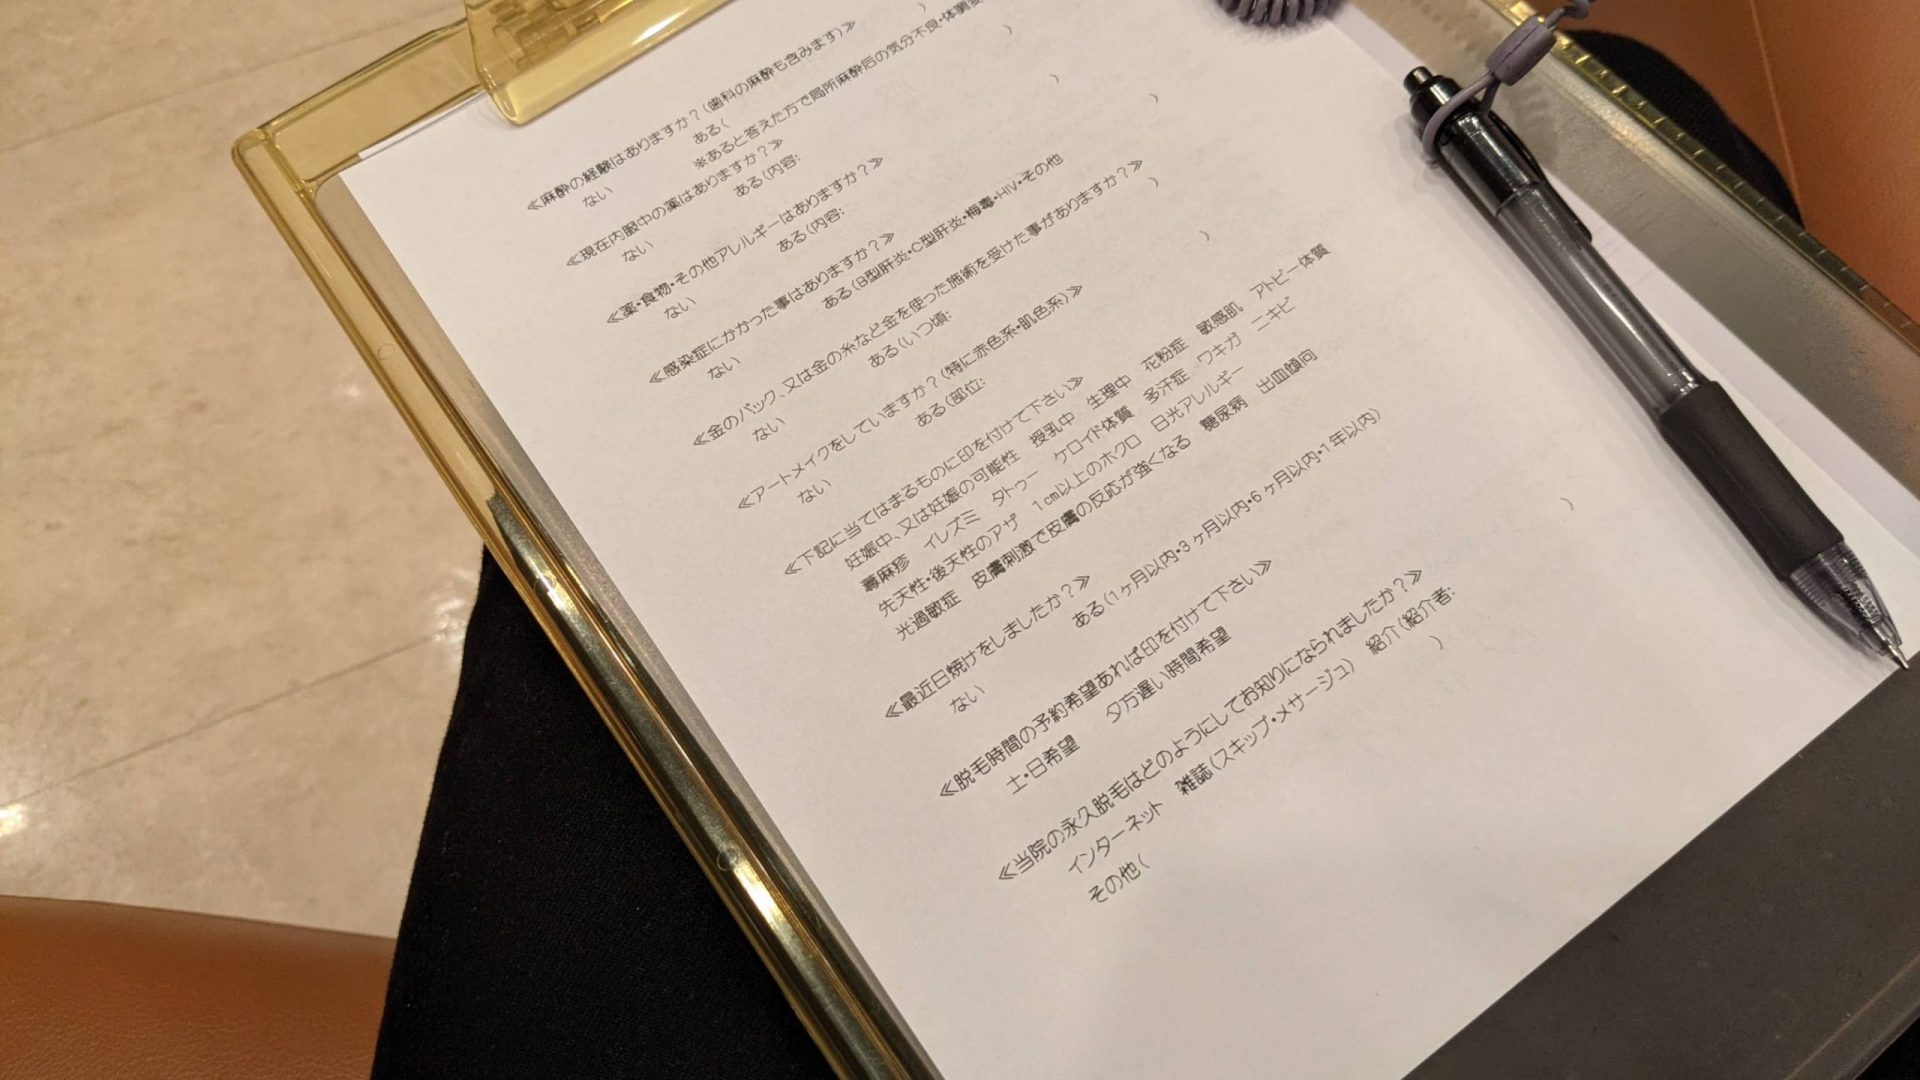 ≪麻酔の経験はありますか？(歯科の麻酔も含みます)≫
ない　ある(　)
※あると答えた方で局所麻酔后の気分不良・体調変
≪現在内服中の薬はありますか？≫
ない　ある(内容:　)
≪薬・食物・その他アレルギーはありますか？≫
ない　ある(内容:　)
≪感染症にかかった事はありますか？≫
ない　ある(B型肝炎・C型肝炎・梅毒・HIV・その他　)
≪金のパック、又は金の糸など金を使った施術を受けた事がありますか？≫
ない　ある(いつ頃:　)
≪アートメイクをしていますか？(特に赤色系・肌色系)≫
ない　ある(部位:　)
≪下記に当てはまるものに印を付けて下さい≫
妊娠中、又は妊娠の可能性　授乳中　生理中　花粉症　敏感肌　アトピー体質
蕁麻疹　イレズミ　タトゥー　ケロイド体質　多汗症　ワキガ　ニキビ
先天性・後天性のアザ　1㎝以上のホクロ　日光アレルギー
光過敏症　皮膚刺激で皮膚の反応が強くなる　糖尿病　出血傾向
≪最近日焼けをしましたか？≫
ない　ある(1ヶ月以内・3ヶ月以内・6ヶ月以内・1年以内)
≪脱毛時間の予約希望あれば印を付けて下さい≫
土・日希望　夕方遅い時間希望
≪当院の永久脱毛はどのようにしてお知りになられましたか？≫
インターネット　雑誌(スキップ・メサージュ)　紹介(紹介者:　)
その他(　)